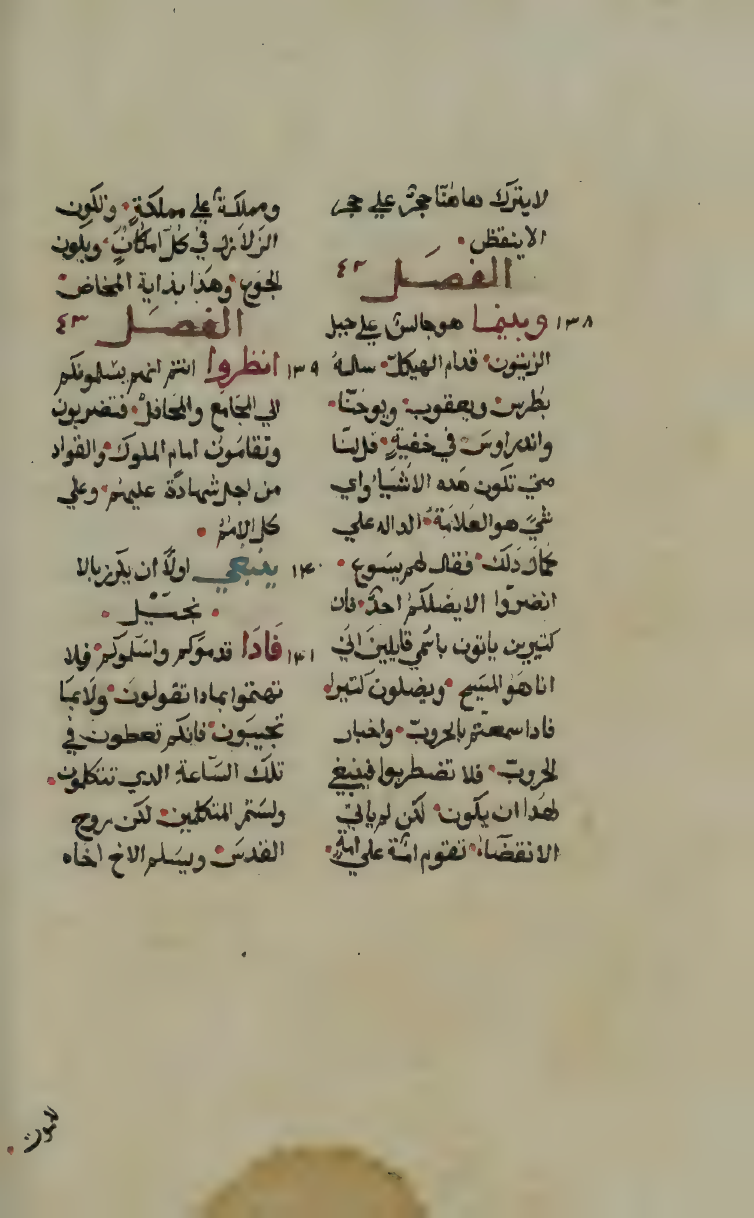 لا يترك هاهنا حجرٌ علي حجر
الا ينقظ
الفصل ٤٢
١٣٨ وبينما هو جالسٌ علي جبل
الزيتون قدام الهيكل ساله
بطرس ويعقوب ويوحنا
واندراوس في خفيةٍ قل لنا
متي تكون هده الاشيا واي
شيَ هو العلامة الداله علي
كمال دلك فقال لهم يسوع
انضروا الا يضلكم احدٌ فان
كتيرين ياتون باسمي قايلين اني
انا هو المسيح ويضلون كتيرا
فادا سمعتم بالحروب واخبار
الحروب فلا تضطربوا فينبغي
لهدا ان يكون لكن لم ياتي
الانقضاء تقوم امة علي امةٍ
ومملكةٌ علي مملكةٍ وتكون
الزلازل في كل امكانٍ ويكون
الجوع وهدا بداية المخاض
الفصل ٤٣
١٣٩ انظروا انتم انهم يسلمونكم
الي المجامع والمحافل فتضربون
وتقامون امام الملوك والقواد
من اجل شهادة عليهم وعلي
كل الامم
١٤٠ ينبغي اولًا ان يكرز بالا
نجيل
١٤١ فادا قدموكم واسلموكم فلا
تهتموا بمادا تقولون ولا بما
تجيبون فانكم تعطون في
تلك الساعة الدي تتكلمون
ولستم المتكلمين لكن روح
القدس ويسلم الاخ اخاه
للموت